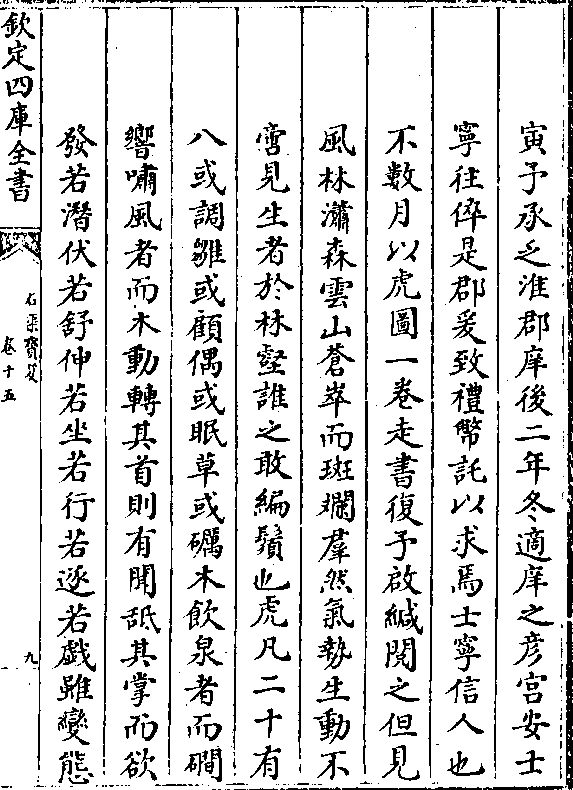 寅予承乏淮郡庠後二年冬適庠之彦宫安士
寧往倅是郡爰致禮幣託以求焉士寧信人也
不數月以虎圖一卷走書復予啟緘閲之但見
風林瀟森雲山蒼崒而斑斕羣然氣勢生動不
啻見生者於林壑誰之敢編鬚也虎凡二十有
八或調雛或顧偶或眠草或礪木飲泉者而磵
響嘯風者而木動轉其首則有聞舐其掌而欲
發若潛伏若舒伸若坐若行若逐若戯雖變態
欽定四庫全書
石渠寶笈
卷十五
九